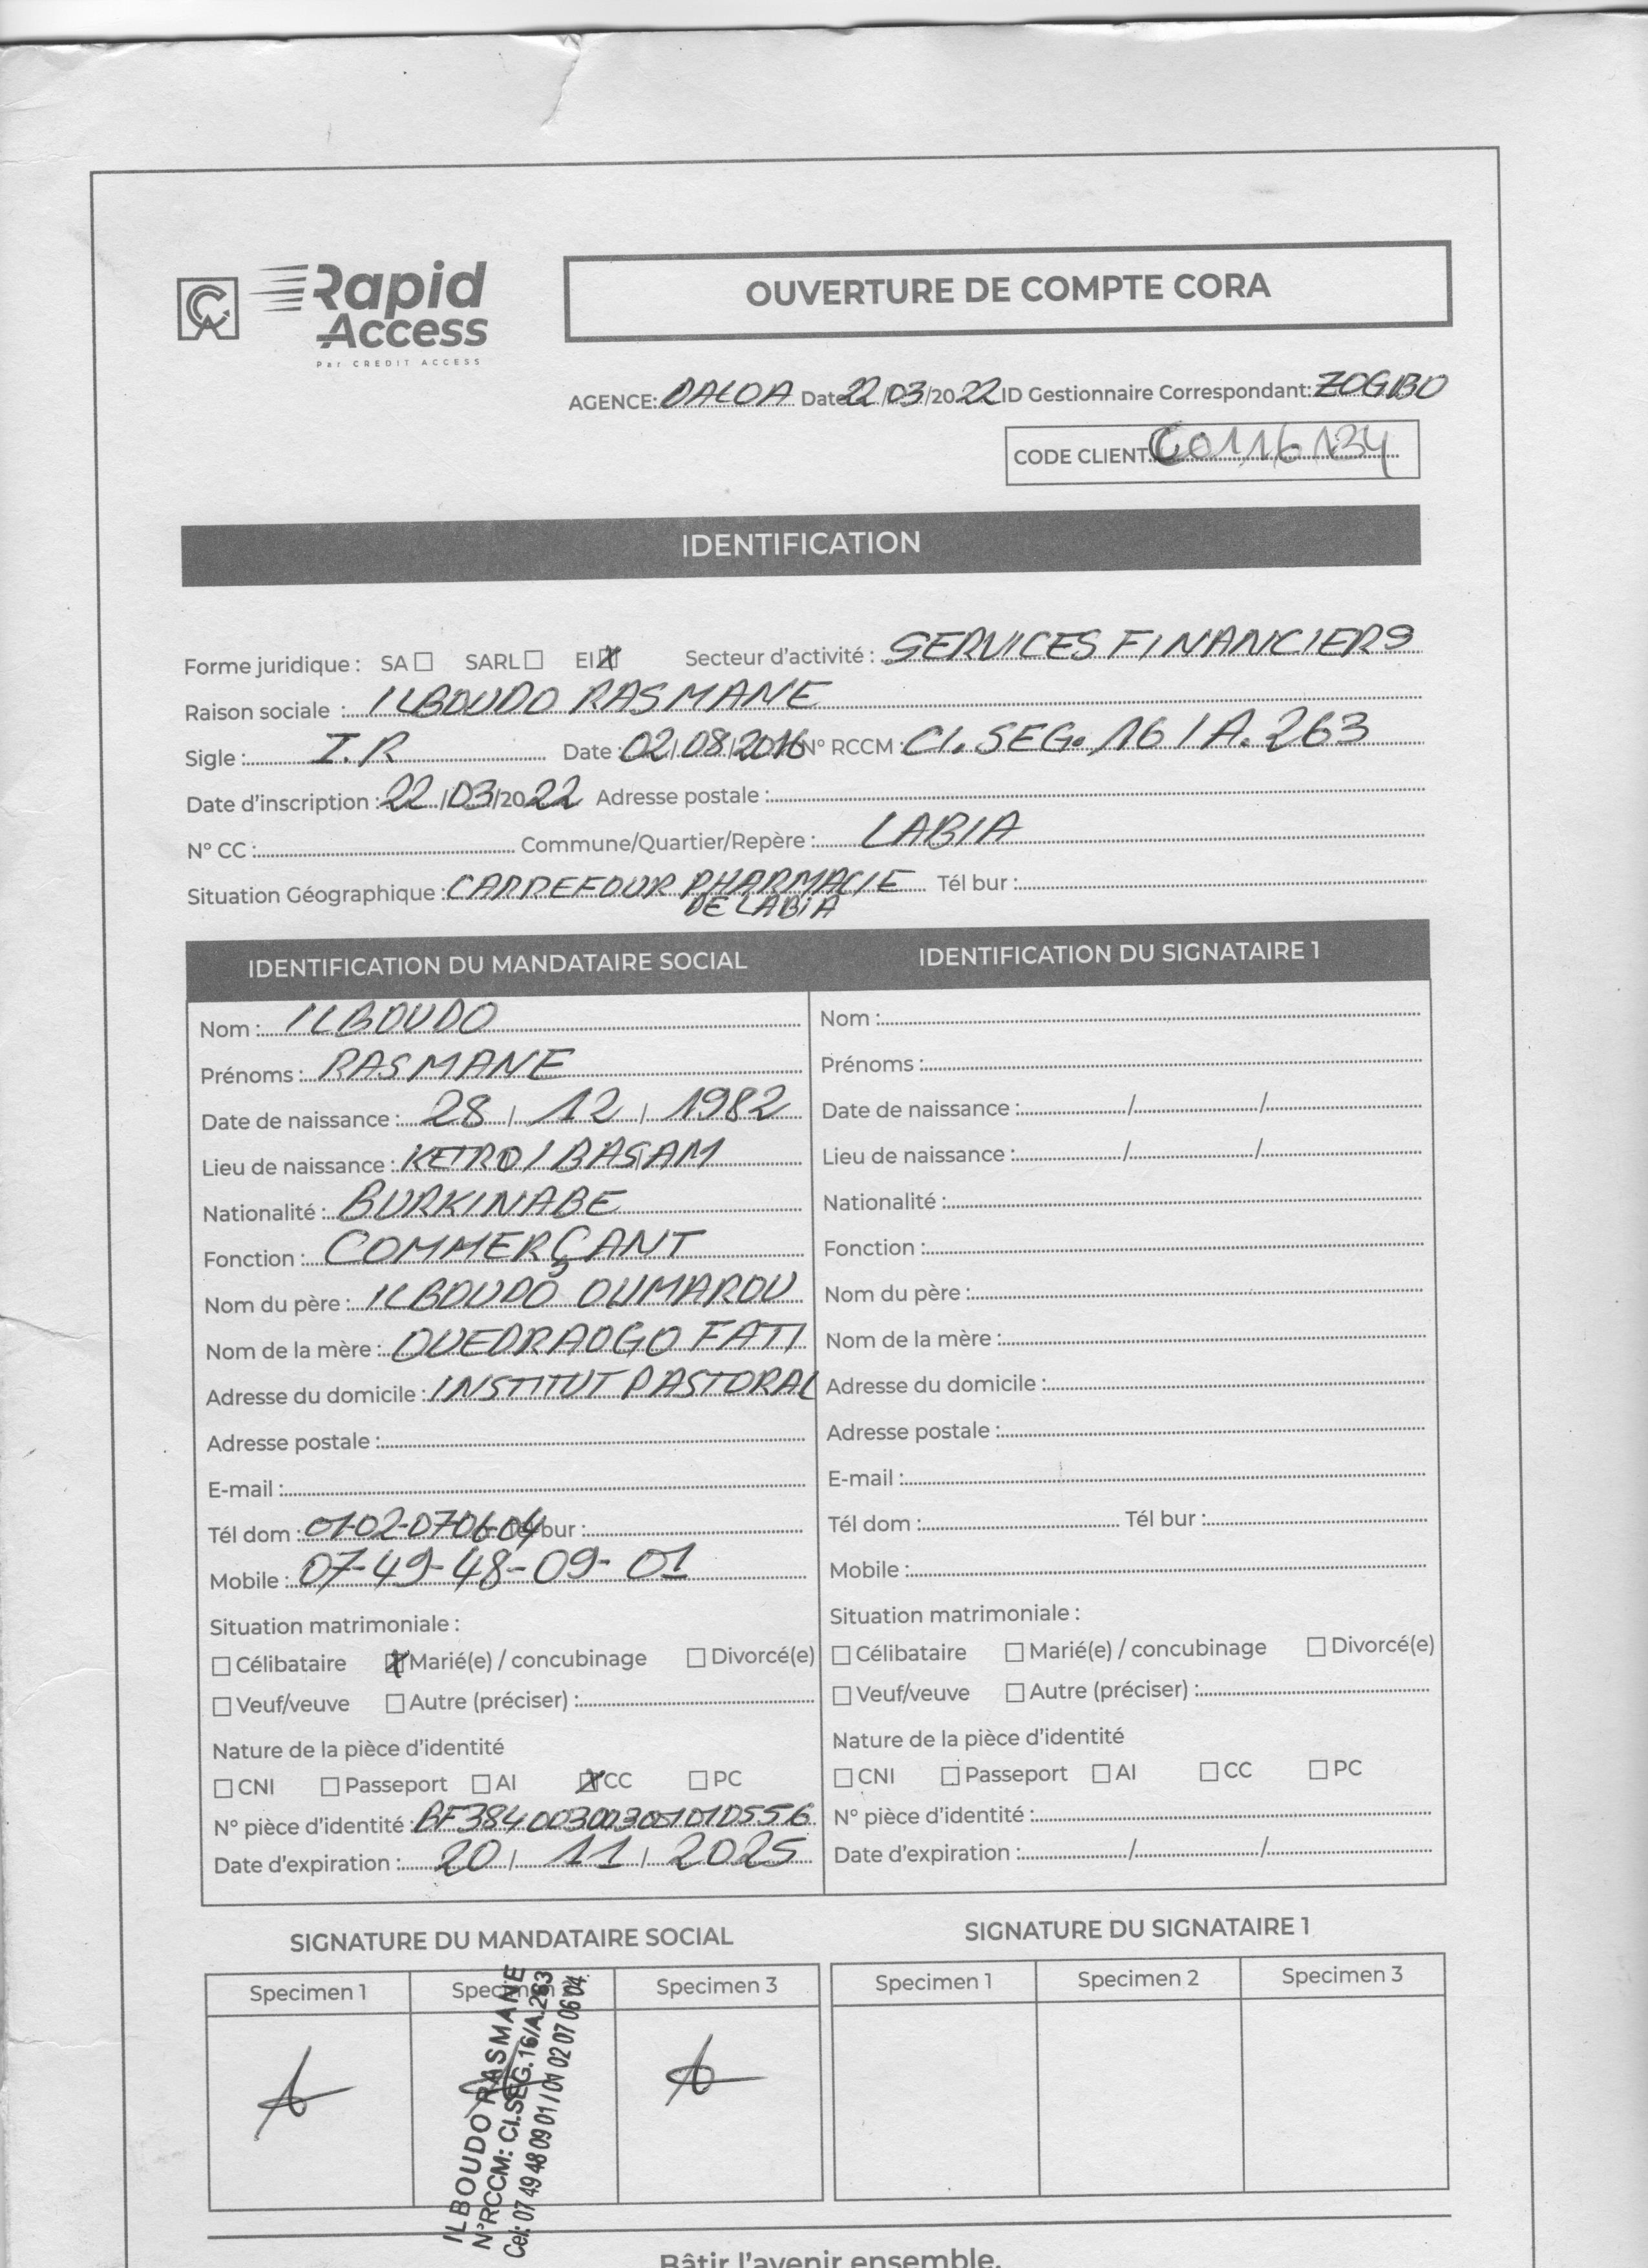 Rapid
Access
Par CREDIT ACCESS
OUVERTURE DE COMPTE CORA
AGENCE: DALOA Date 22/03/2022 ID Gestionnaire Correspondant: ZOGBO
CODE CLIENT: C0116134
IDENTIFICATION
Forme juridique : SA ☐ SARL ☐ EI ☒ Secteur d'activité : SERVICES FINANCIERS
Raison sociale : ILBOUDO RASMANE
Sigle : I.R Date : 02/08/2016 N° RCCM : CI.SEG.16/A.263
Date d'inscription : 22/03/2022 Adresse postale :
N° CC : Commune/Quartier/Repère : LABIA
Situation Géographique : CARREFOUR PHARMACIE Tél bur :
DE LABIA
IDENTIFICATION DU MANDATAIRE SOCIAL
Nom : ILBOUDO
Prénoms : RASMANE
Date de naissance : 28/12/1982
Lieu de naissance : /BASSAM
Nationalité : BURKINABE
Fonction : COMMERÇANT
Nom du père : ILBOUDO OUMAROU
Nom de la mère : OUEDRAOGO FATI
Adresse du domicile : INSTITUT PASTORAL
Adresse postale :
E-mail :
Tél dom : 01-02-070604 Tél bur :
Mobile : 07-49-48-09-01
Situation matrimoniale :
☐ Célibataire ☒ Marié(e) / concubinage ☐ Divorcé(e)
☐ Veuf/veuve ☐ Autre (préciser) :
Nature de la pièce d'identité
☐ CNI ☐ Passeport ☐ AI ☒ CC ☐ PC
N° pièce d'identité : BF384003003001010556
Date d'expiration : 20/11/2025
IDENTIFICATION DU SIGNATAIRE 1
Nom :
Prénoms :
Date de naissance : / /
Lieu de naissance : / /
Nationalité :
Fonction :
Nom du père :
Nom de la mère :
Adresse du domicile :
Adresse postale :
E-mail :
Tél dom : Tél bur :
Mobile :
Situation matrimoniale :
☐ Célibataire ☐ Marié(e) / concubinage ☐ Divorcé(e)
☐ Veuf/veuve ☐ Autre (préciser) :
Nature de la pièce d'identité
☐ CNI ☐ Passeport ☐ AI ☐ CC ☐ PC
N° pièce d'identité :
Date d'expiration : / /
SIGNATURE DU MANDATAIRE SOCIAL
Specimen 1 Specimen Specimen 3
ILBOUDO RASMANE
N°RCCM: CI.SEG.16/A.263
Cel: 07 49 48 09 01 / 01 02 07 06 04
SIGNATURE DU SIGNATAIRE 1
Specimen 1 Specimen 2 Specimen 3
Bâtir l'avenir ensemble.